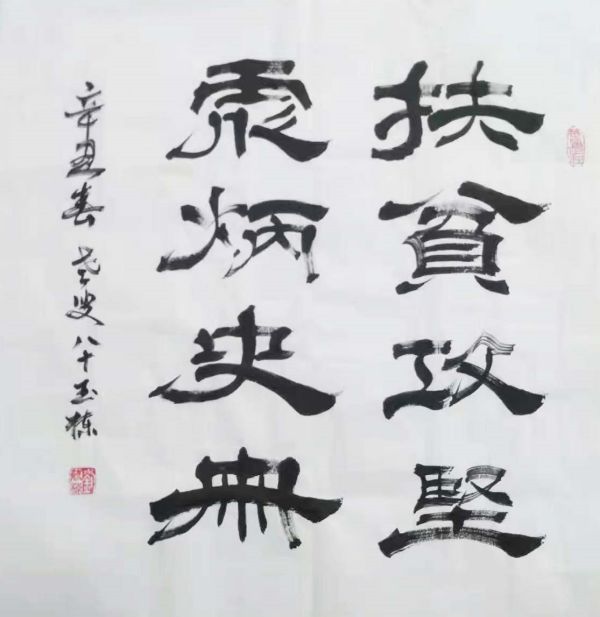 扶貧攻堅
彪炳史册
辛丑春 老叟八十玉栋